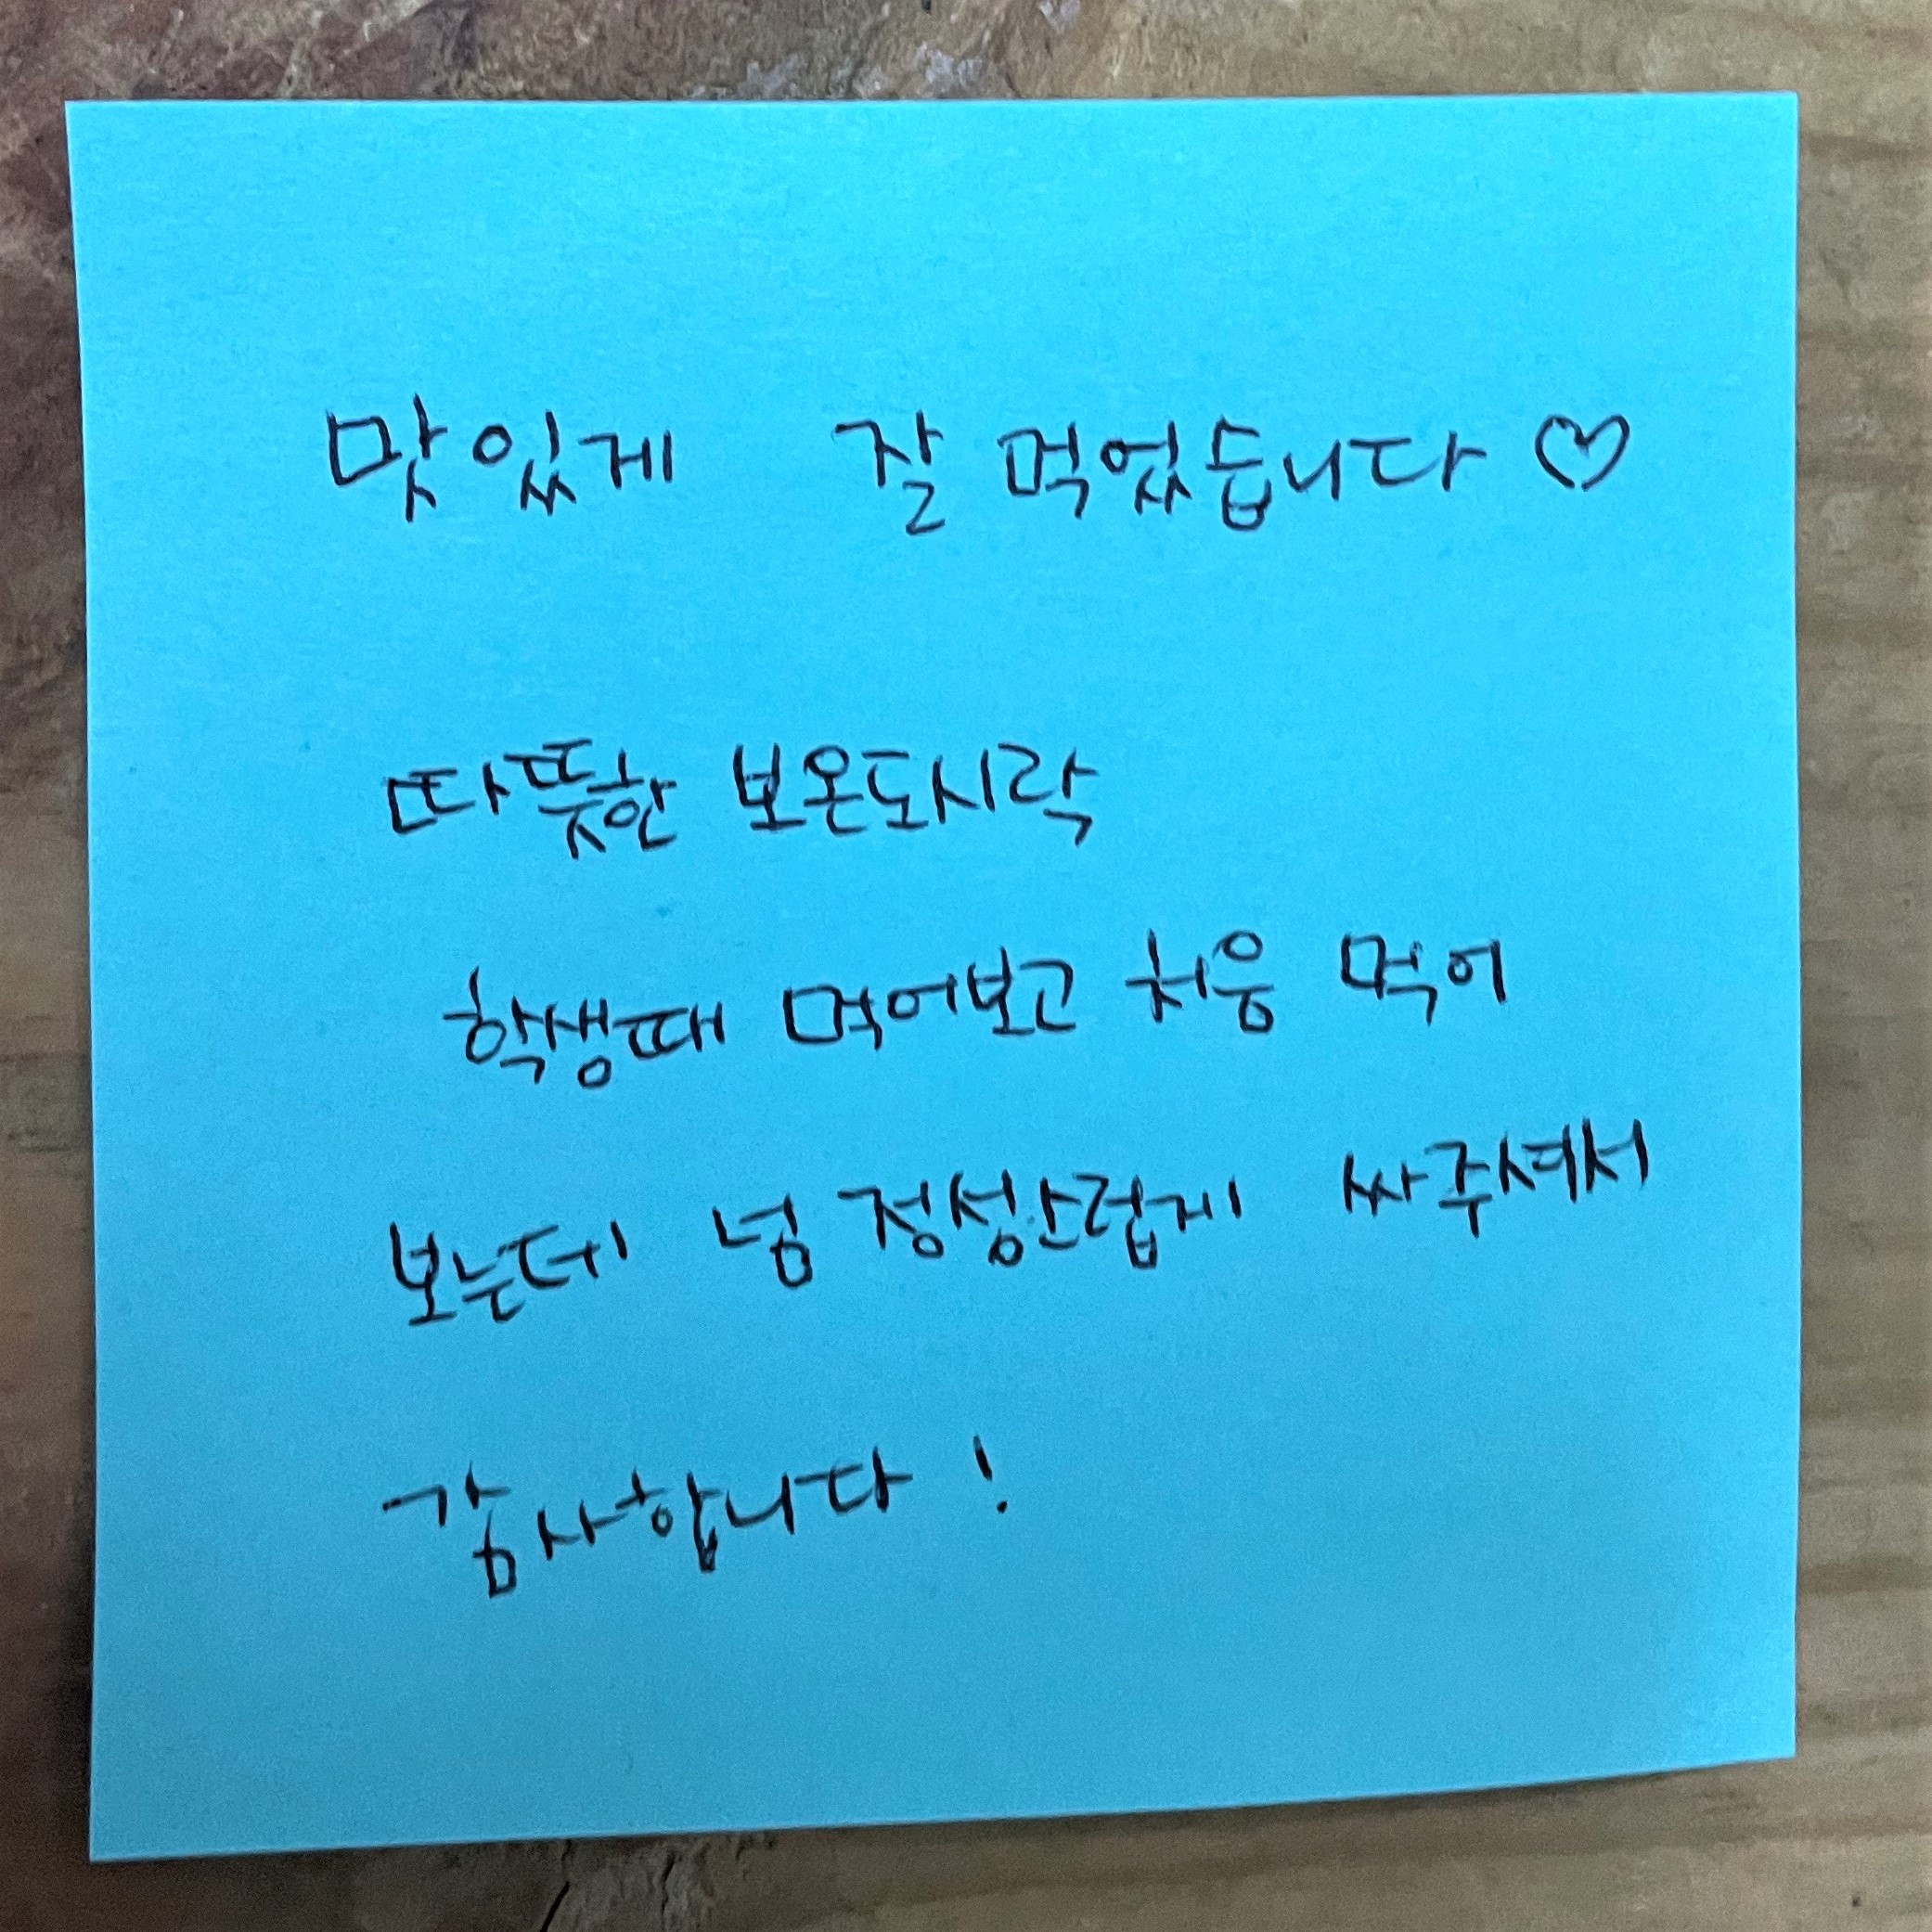 맛있게 잘 먹었습니다 ♡
따뜻한 보온도시락
학생때 먹어보고 처음 먹어
보는데 넘 정성스럽게 싸주셔서
감사합니다 !